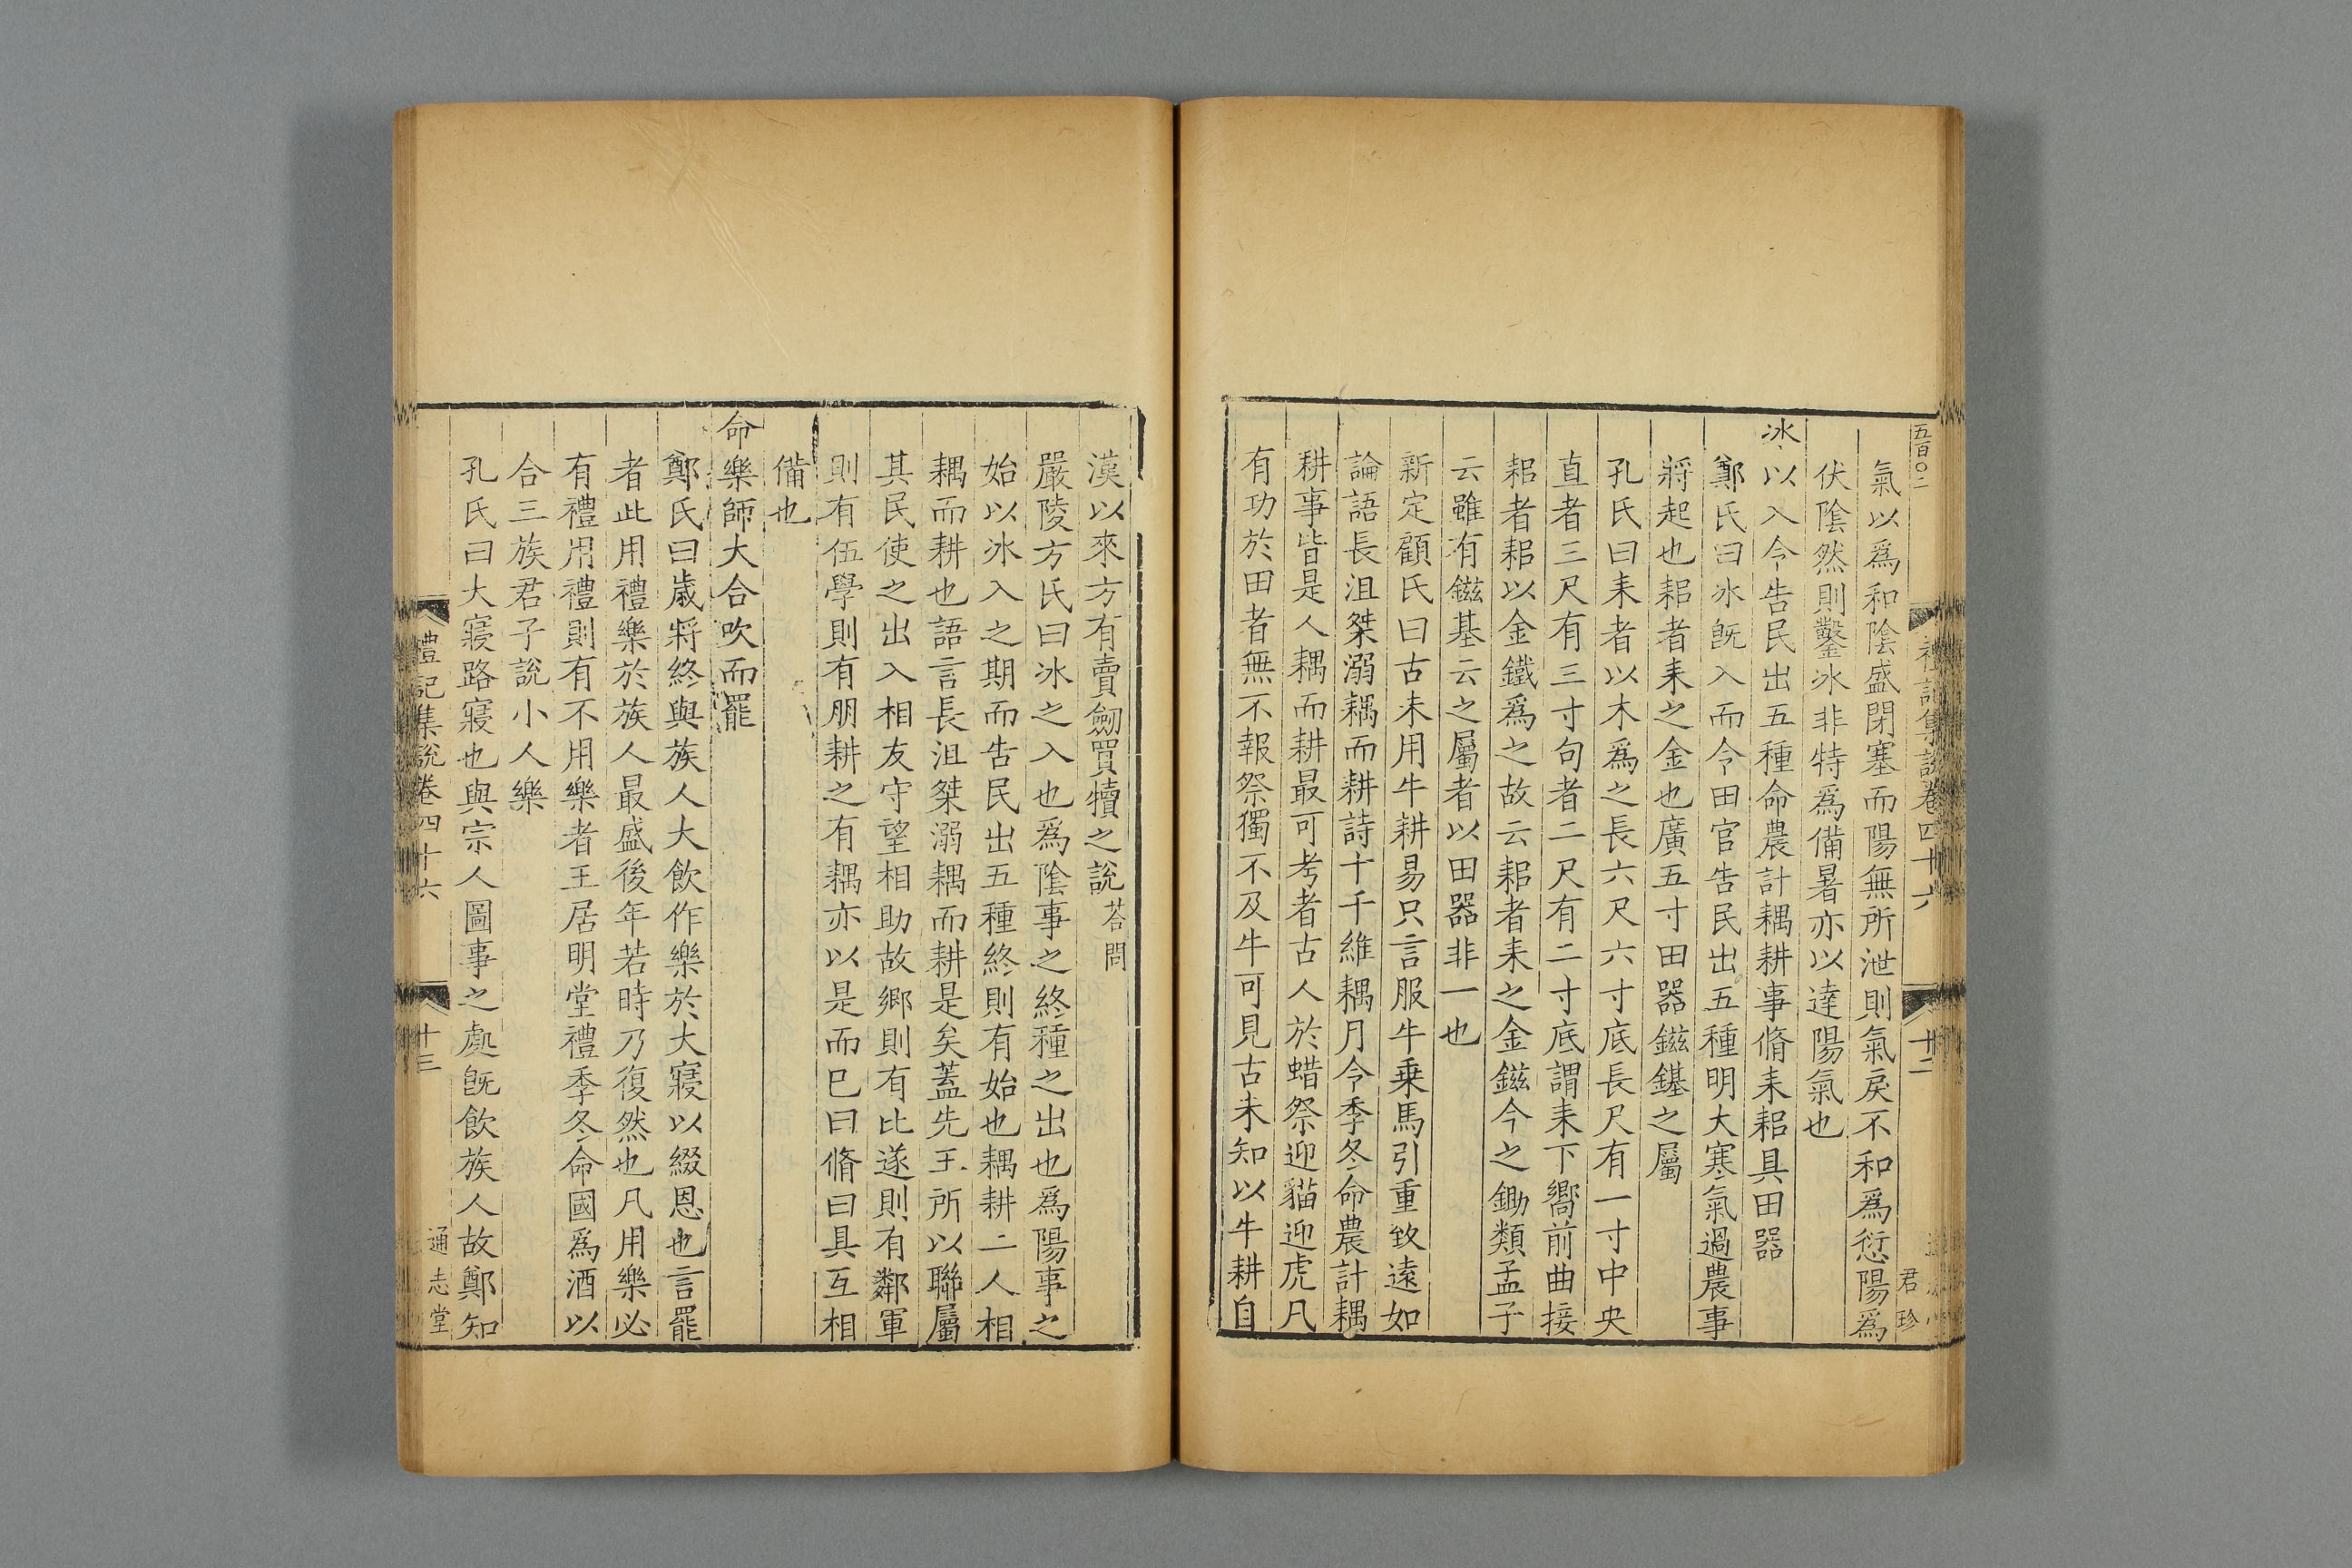 五百〇二
禮記集說卷四十六
十二
君珍
氣以爲和陰盛閉塞而陽無所泄則氣戾不和爲愆陽爲
伏陰然則鑿冰非特爲備暑亦以達陽氣也
冰以入令告民出五種命農計耦耕事脩耒耜具田器
鄭氏曰冰旣入而令田官告民出五種明大寒氣過農事
將起也耜者耒之金也廣五寸田器鎡錤之屬
孔氏曰耒者以木爲之長六尺六寸底長尺有一寸中央
直者三尺有三寸句者二尺有二寸底謂耒下嚮前曲接
耜者耜以金鐵爲之故云耜者耒之金鎡今之鋤類孟子
云雖有鎡基云之屬者以田器非一也
新定顧氏曰古未用牛耕易只言服牛乗馬引重致遠如
論語長沮桀溺耦而耕詩十千維耦月令季冬命農計耦
耕事皆是人耦而耕最可考者古人於蜡祭迎貓迎虎凡
有功於田者無不報祭獨不及牛可見古未知以牛耕自
漢以來方有賣劒買犢之說荅問
嚴陵方氏曰冰之入也爲陰事之終種之出也爲陽事之
始以冰入之期而告民出五種終則有始也耦耕二人相
耦而耕也語言長沮桀溺耦而耕是矣蓋先王所以聯屬
其民使之出入相友守望相助故鄉則有比遂則有鄰軍
則有伍學則有朋耕之有耦亦以是而已曰脩曰具互相
備也
命樂師大合吹而罷
鄭氏曰歲將終與族人大飮作樂於大寢以綴恩也言罷
者此用禮樂於族人最盛後年若時乃復然也凡用樂必
有禮用禮則有不用樂者王居明堂禮季冬命國爲酒以
合三族君子說小人樂
孔氏曰大寢路寢也與宗人圖事之處旣飮族人故鄭知
禮記集說卷四十六
十三
通志堂